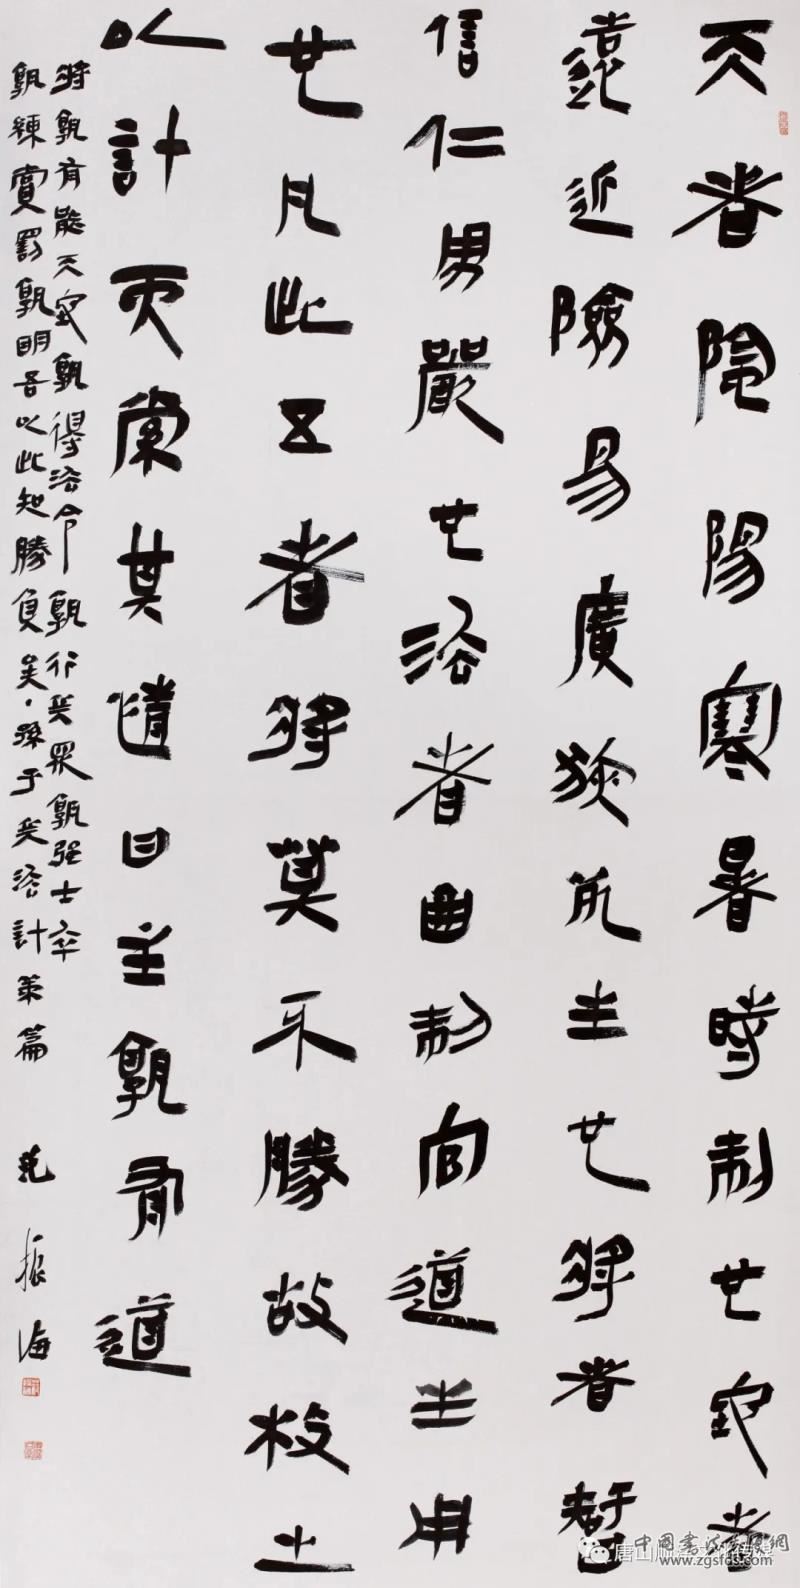 天者陰陽寒暑時制也地者
遠近險易廣狹死生也將者智
信仁勇嚴也法者曲制官道主用
也凡此五者將莫不勝故校之
以計而索其情曰主孰有道
將孰有能天地孰得法令孰行兵眾孰強士卒
孰練賞罰孰明吾以此知勝負矣·孫子兵法計策篇
范振海
唐山
中國書法
www.zgsfds.com